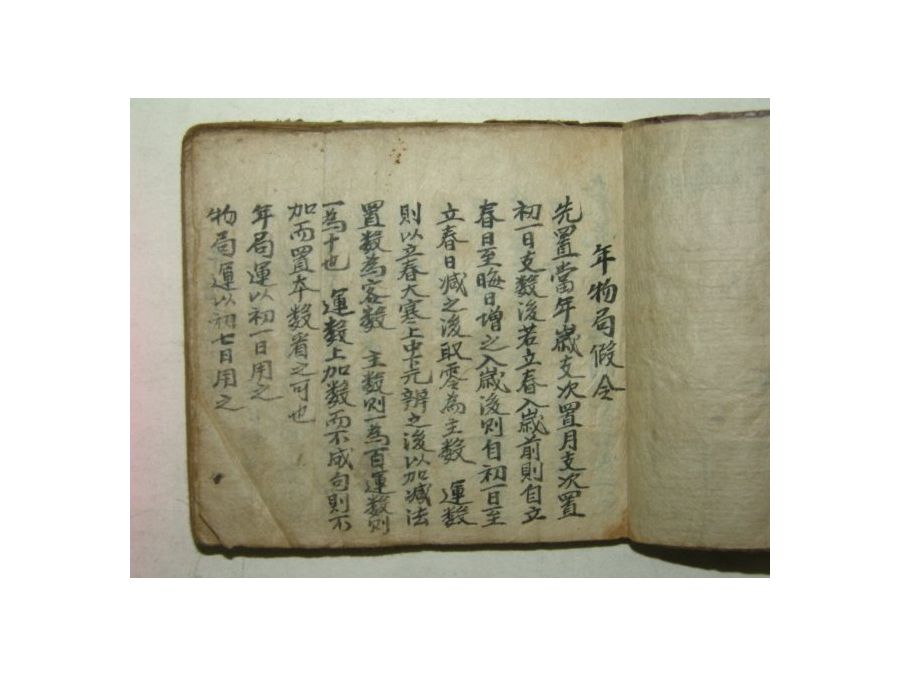 年物局假令
先置當年歲支次置月支次置
初一日支數後若立春入歲前則自立
春日至晦日增之入歲後則自初一日至
立春日减之後取零為主數 運數
則以立春大寒上中下元辨之後以加减法
置數為客數 主數則一為百運數則
一為十也 運數上加數而不成句則不
加而置本數省之可也
年局運以初一日用之
物局運以初七日用之